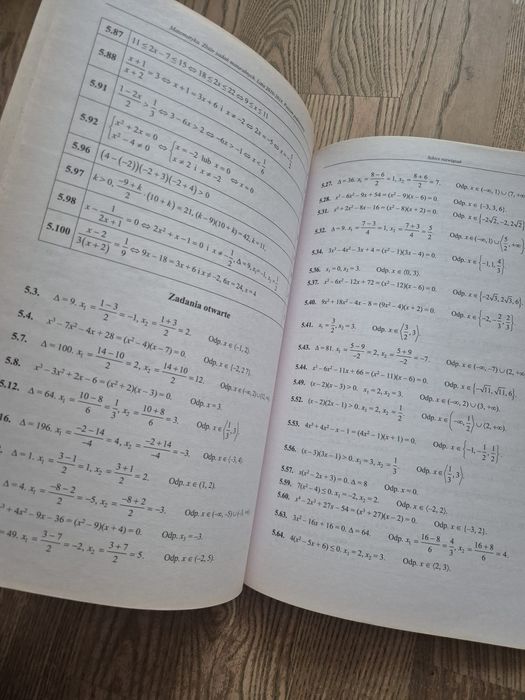 Matematyka. Zbiór zadań maturalnych. Lata 2010–2019. Poziom
5.87 11 ≤ 2x − 7 ≤ 15 ⇔ 18 ≤ 2x ≤ 22 ⇔ 9 ≤ x ≤ 11
5.88 (x+1)/(x+2) = 3 ⇔ x + 1 = 3x + 6 i x ≠ −2 ⇔ 2x = −5 ⇔ x = −5/2
5.91 (1−2x)/2 > 1/3 ⇔ 3 − 6x > 2 ⇔ −6x > −1 ⇔ x < 1/6
5.92 {x² + 2x = 0 ⇔ {x = −2 lub x = 0 ⇔ x = 0
x² − 4 ≠ 0 x ≠ 2 i x ≠ −2
5.96 (4 − (−2))(−2 + 3)(−2 + 4) > 0
5.97 k > 0, (−9+k)/2 · (10 + k) = 21, (k − 9)(10 + k) = 42, k = 11,
5.98 x − 1/(2x+1) = 0 ⇔ 2x² + x − 1 = 0 i x ≠ −1/2, Δ = 9, x₁ = −1, x₂ = 1/2
5.100 (x−2)/(3(x+2)) = 1/9 ⇔ 9x − 18 = 3x + 6 i x ≠ −2, 6x = 24, x = 4
Zadania otwarte
5.3. Δ = 9. x₁ = (1−3)/2 = −1, x₂ = (1+3)/2 = 2. Odp. x ∈ (−1, 2).
5.4. x³ − 7x² − 4x + 28 = (x² − 4)(x − 7) = 0. Odp. x ∈ {−2, 2, 7}.
5.7. Δ = 100. x₁ = (14−10)/2 = 2, x₂ = (14+10)/2 = 12. Odp. x ∈ (−∞, 2) ∪
5.8. x³ − 3x² + 2x − 6 = (x² + 2)(x − 3) = 0. Odp. x = 3.
5.12. Δ = 64. x₁ = (10−8)/6 = 1/3, x₂ = (10+8)/6 = 3. Odp. x ∈ (1/3, 3).
16. Δ = 196. x₁ = (−2−14)/−4 = 4, x₂ = (−2+14)/−4 = −3. Odp. x ∈ (−3, 4).
Δ = 1. x₁ = (3−1)/2 = 1, x₂ = (3+1)/2 = 2. Odp. x ∈ (1, 2).
Δ = 4. x₁ = (−8−2)/2 = −5, x₂ = (−8+2)/2 = −3. Odp. x ∈ (−∞, −5) ∪
³ + 4x² − 9x − 36 = (x² − 9)(x + 4) = 0. Odp. x₁ = −3.
= 49. x₁ = (3−7)/2 = −2, x₂ = (3+7)/2 = 5. Odp. x ∈ (−2, 5).
Szkice rozwiązań
5.27. Δ = 36. x₁ = (8−6)/2 = 1, x₂ = (8+6)/2 = 7. Odp. x ∈ (−∞, 1) ∪ (7, +∞)
5.28. x³ − 6x² − 9x + 54 = (x² − 9)(x − 6) = 0. Odp. x ∈ {−3, 3, 6}.
5.31. x³ + 2x² − 8x − 16 = (x² − 8)(x + 2) = 0. Odp. x ∈ {−2√2, −2, 2√2}
5.32. Δ = 9. x₁ = (7−3)/4 = 1, x₂ = (7+3)/4 = 5/2. Odp. x ∈ (−∞, 1) ∪ (5/2, +∞)
5.34. 3x³ − 4x² − 3x + 4 = (x² − 1)(3x − 4) = 0. Odp. x ∈ {−1, 1, 4/3}
5.36. x₁ = 0, x₂ = 3. Odp. x ∈ (0, 3).
5.37. x³ − 6x² − 12x + 72 = (x² − 12)(x − 6) = 0. Odp. x ∈ {−2√3, 2√3, 6}
5.40. 9x³ + 18x² − 4x − 8 = (9x² − 4)(x + 2) = 0. Odp. x ∈ {−2, −2/3, 2/3}
5.41. x₁ = 3/2, x₂ = 3. Odp. x ∈ (3/2, 3).
5.43. Δ = 81. x₁ = (5−9)/−2 = 2, x₂ = (5+9)/−2 = −7. Odp. x ∈ (−∞, −7) ∪ (2, +∞
5.44. x³ − 6x² − 11x + 66 = (x² − 11)(x − 6) = 0. Odp. x ∈ {−√11, √11, 6}
5.49. (x − 2)(x − 3) > 0, x₁ = 2, x₂ = 3. Odp. x ∈ (−∞, 2) ∪ (3, +∞).
5.52. (x − 2)(2x − 1) > 0. x₁ = 2, x₂ = 1/2 Odp. x ∈ (−∞, 1/2) ∪ (2, +∞).
5.53. 4x³ + 4x² − x − 1 = (4x² − 1)(x + 1) = 0. Odp. x ∈ {−1, −1/2, 1/2}.
5.56. (x − 3)(3x − 1) > 0. x₁ = 3, x₂ = 1/3 Odp. x ∈ (1/3, 3).
5.57. x(x² − 2x + 3) = 0. Δ = 8 Odp. x = 0.
5.59. 7(x² − 4) ≤ 0. x₁ = −2, x₂ = 2. Odp. x ∈ (−2, 2).
5.60. x⁴ − 2x³ + 27x − 54 = (x³ + 27)(x − 2) = 0. Odp. x ∈ {−3, 2}.
5.63. 3x² − 16x + 16 = 0. Δ = 64. Odp. x₁ = (16−8)/6 = 4/3, x₂ = (16+8)/6 = 4
5.64. 4(x² − 5x + 6) ≤ 0. x₁ = 2, x₂ = 3. Odp. x ∈ (2, 3).